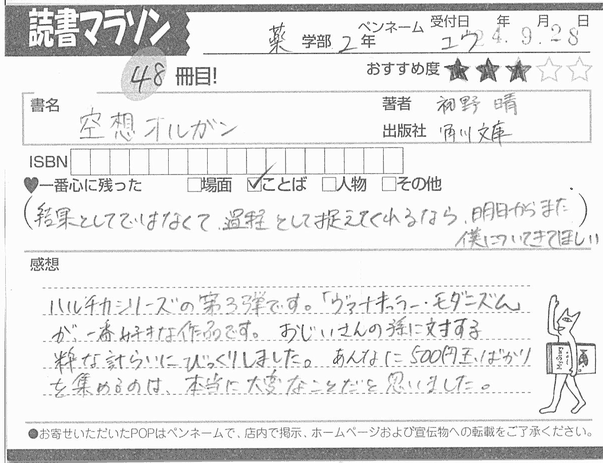 読書マラソン
薬 学部 2年 ペンネーム ユウ 受付日 年 月 日 24.9.28
48 冊目! おすすめ度 ★★★☆☆
書名 空想オルガン 著者 初野 晴
出版社 角川文庫
ISBN
♥一番心に残った □場面 ☑ことば □人物 □その他
(結果としてではなくて、過程として捉えてくれるなら、明日からまた
僕についてきてほしい)
感想
ハルチカシリーズの第3弾です。「ヴァナキュラー・モダニズム」
が、一番好きな作品です。おじいさんの孫に対する
粋な計らいにびっくりしました。あんなに500円玉ばかり
を集めるのは、本当に大変なことだと思いました。
●お寄せいただいたPOPはペンネームで、店内で掲示、ホームページおよび宣伝物への転載をご了承ください。